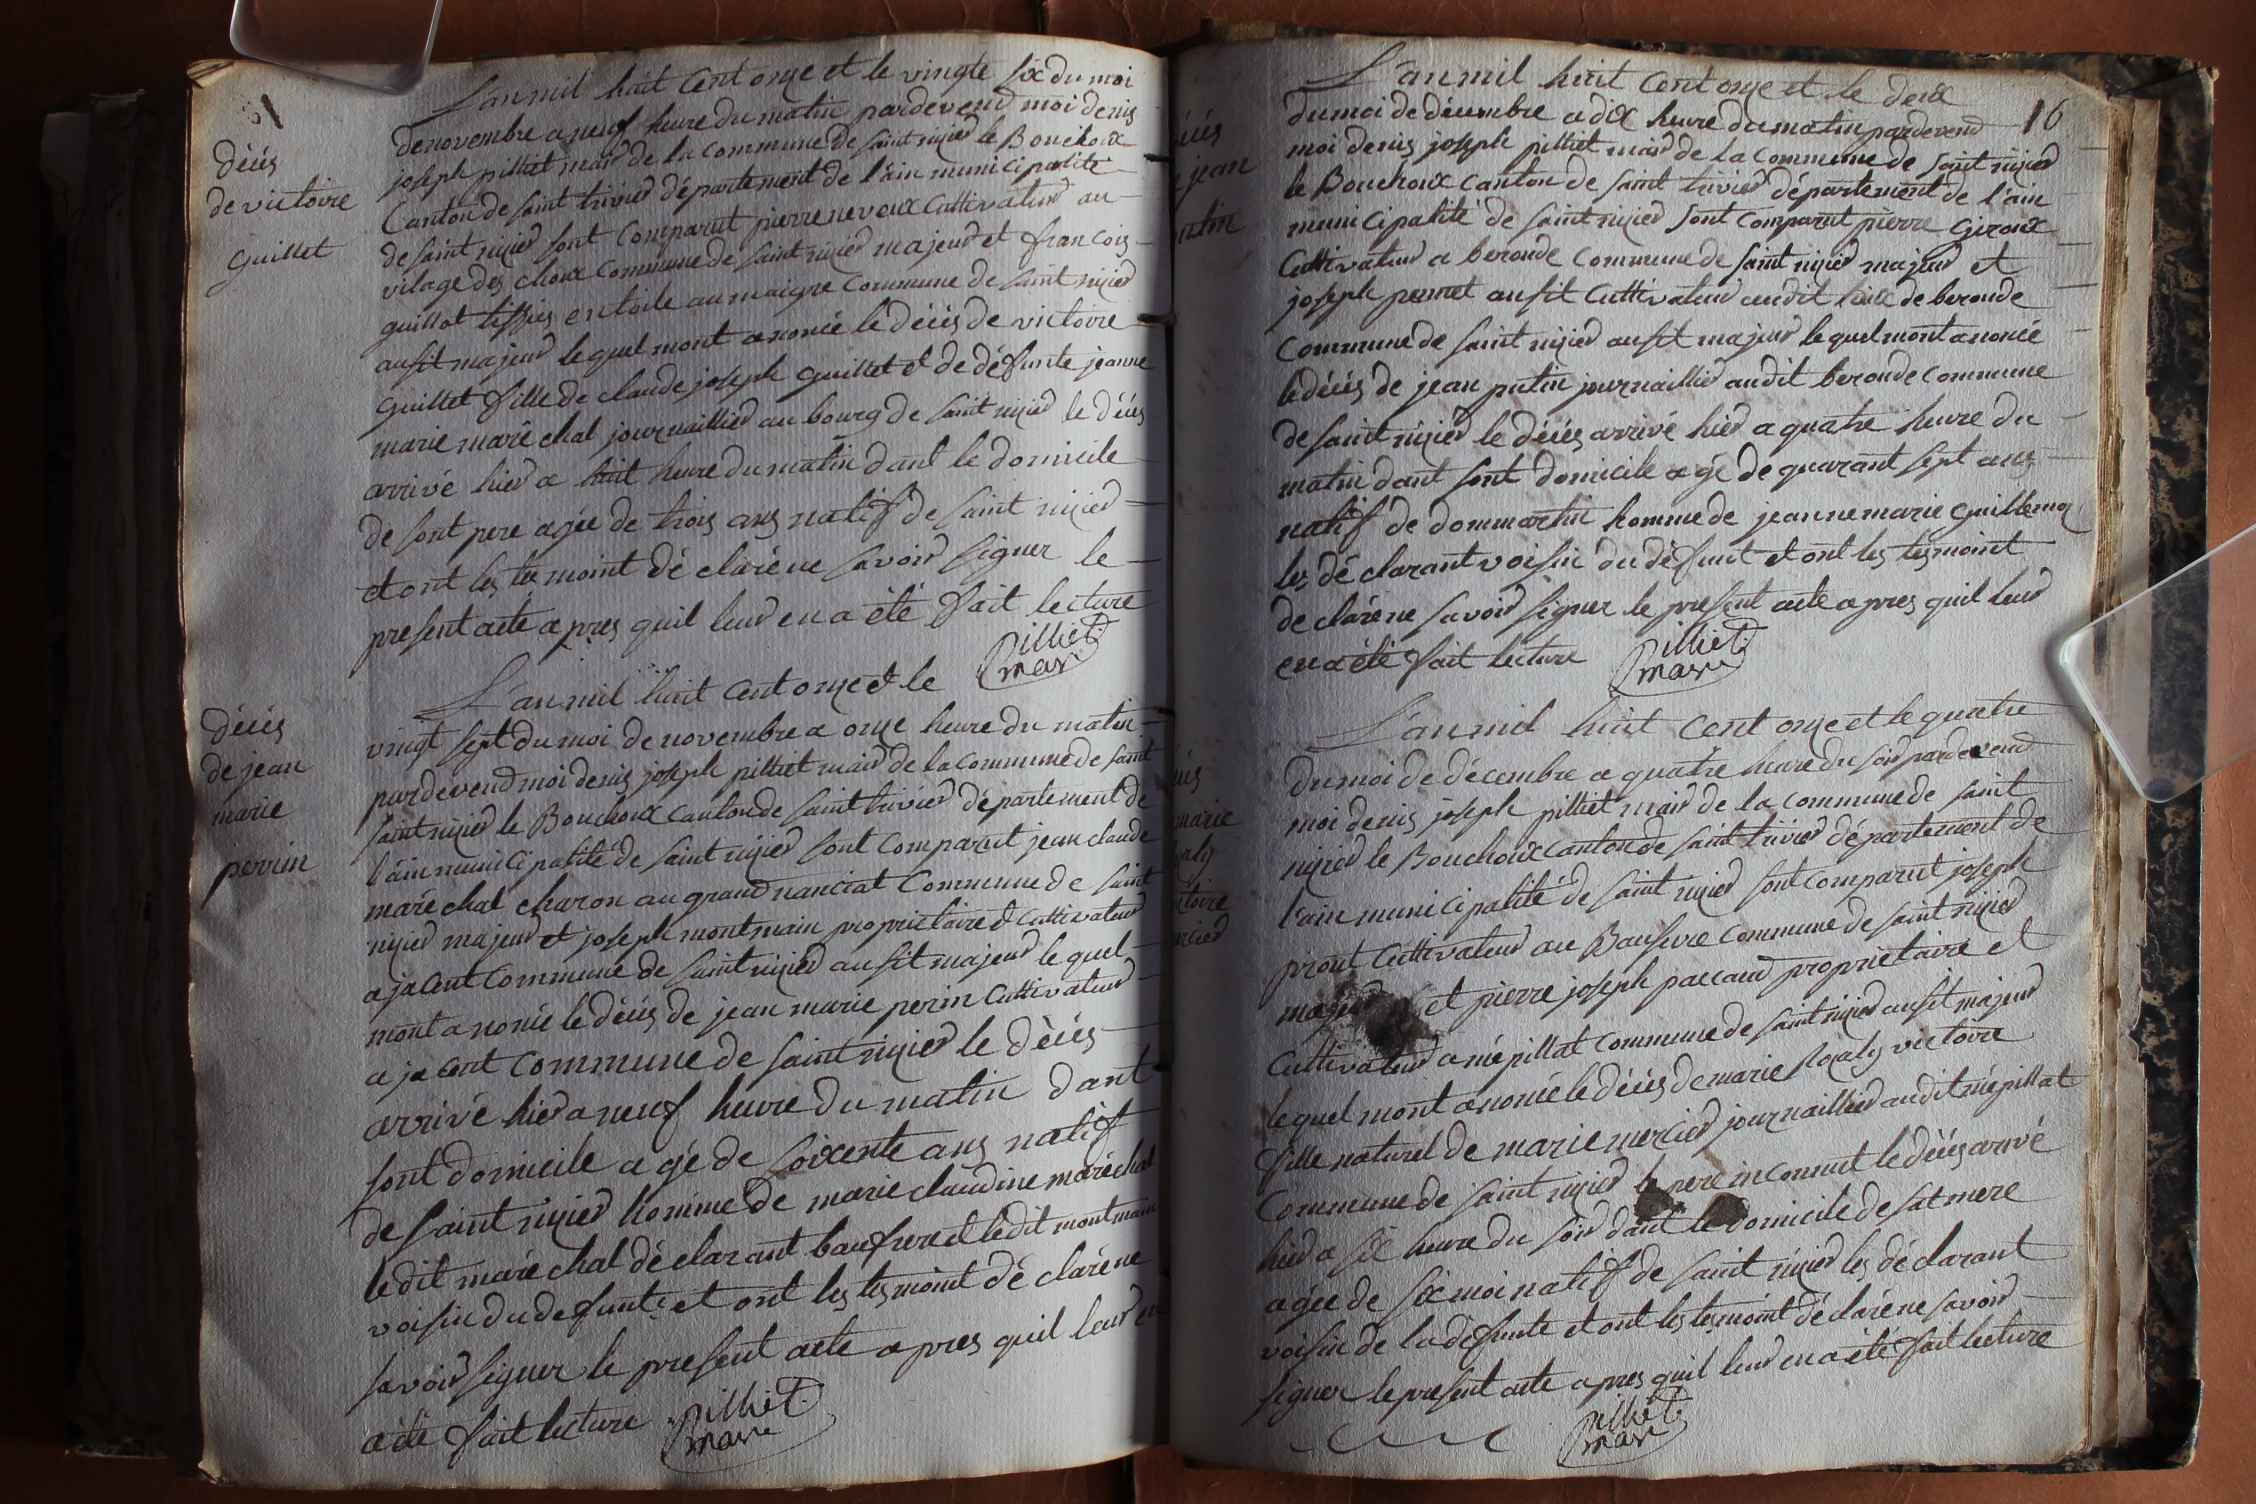 décés
de victoire
guillet
L'an mil huit cent onze et le vingte six du moi
de novembre a neuf heure du matin pardevend moi denis
joseph pilliet maire de la commune de saint nizier le Bouchoux
Canton de saint trivier département de l'ain municipalité
de saint nizier sont comparut pierre neveux cultivateur au
vilage des choux commune de saint nizier majeur et francois
guillot tissier en toile au maigre commune de saint nizier
ausit majeur le quel mont anoncé le décés de victoire
guillet fille de claude joseph guillet et de défunte jeanne
marie maréchal journaillier au bourg de saint nizier le décés
arrivé hier a huit heure du matin dant le domicile
de sont pere agée de trois ans natif de saint nizier
et ont les tesmoint déclaré ne savoir signer le
present acte apres quil leur en a été fait lecture
pilliet
mair
décés
de jean
marie
perrin
L'an mil huit cent onze et le
vingt sept du moi de novembre a onze heure du matin
pardevend moi denis joseph pilliet mair de la commune de saint
saint nizier le Bouchoux canton de saint trivier département de
l'ain municipalité de saint nizier sont comparut jean claude
maréchal charon au grand nanciat commune de saint
nizier majeur et joseph montmain proprietaire et cultivateur
a jacent commune de saint nizier ausit majeur le quel
mont anoncé le décés de jean marie perin cultivateur
a jacent commune de saint nizier le décés
arrivé hier a neuf heure du matin dant
sont domicile agé de soixente ans natif
de saint nizier homme de marie claudine maréchal
le dit maréchal déclarant baufrere et ledit montmain
voisin du defunte et ont les tesmoint déclaré ne
savoir signer le present acte apres quil leur en
a été fait lecture
pilliet
mair
16
L'an mil huit cent onze et le deux
du moi de décembre a dix heure du matin pardevend
moi denis joseph pilliet mair de la commune de saint nizier
le Bouchoux canton de saint trivier département de l'ain
municipalité de saint nizier sont comparut pierre Giroux
cultivateur a beronde commune de saint nizier majeur et
joseph pernet ausit cultivateur audit de beronde
commune de saint nizier ausit majeur le quel mont anoncé
le décés de jean putin journaillier audit beronde commune
de saint nizier le décés arrivé hier a quatre heure du
matin dant sont domicile agé de quarant sept ans
natif de dommartin homme de jeanne marie guillemoz
les déclarant voisin du défunt et ont les tesmoint
declaré ne savoir signer le present acte apres quil leur
en a été fait lecture
pilliet
mair
L'an mil huit cent onze et le quatre
du moi de décembre a quatre heure du soir pardevend
moi denis joseph pilliet mair de la commune de saint
nizier le Bouchoux canton de saint trivier département de
l'ain municipalité de saint nizier sont comparut joseph
prout cultivateur au Baufevre commune de saint nizier
majeur et pierre joseph paccaud proprietaire et
cultivateur a mépillat commune de saint nizier ausit majeur
le quel mont anoncé le décés de marie Rozaly victoire
fille naturel de marie mercier journaillier audit mépillat
commune de saint nizier le pere inconnut le décés arrivé
hier a six heure du soir dant le domicile de sat mere
agée de six moi natif de saint nizier les déclarant
voisin de la défunte et ont les tesmoint déclaré ne savoir
signer le present acte apres quil leur en a été fait lecture
pilliet
mair